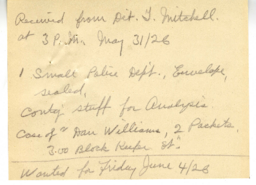 Received from Det. T. Mitchell.
at 3 P.M. May 31/26
1 Small Police Dept., Envelope,
sealed,
Contg stuff for Analysis.
Case of "Dan Williams, 2 Packets.
300 Block Keefer St."
Wanted for Friday June 4/26